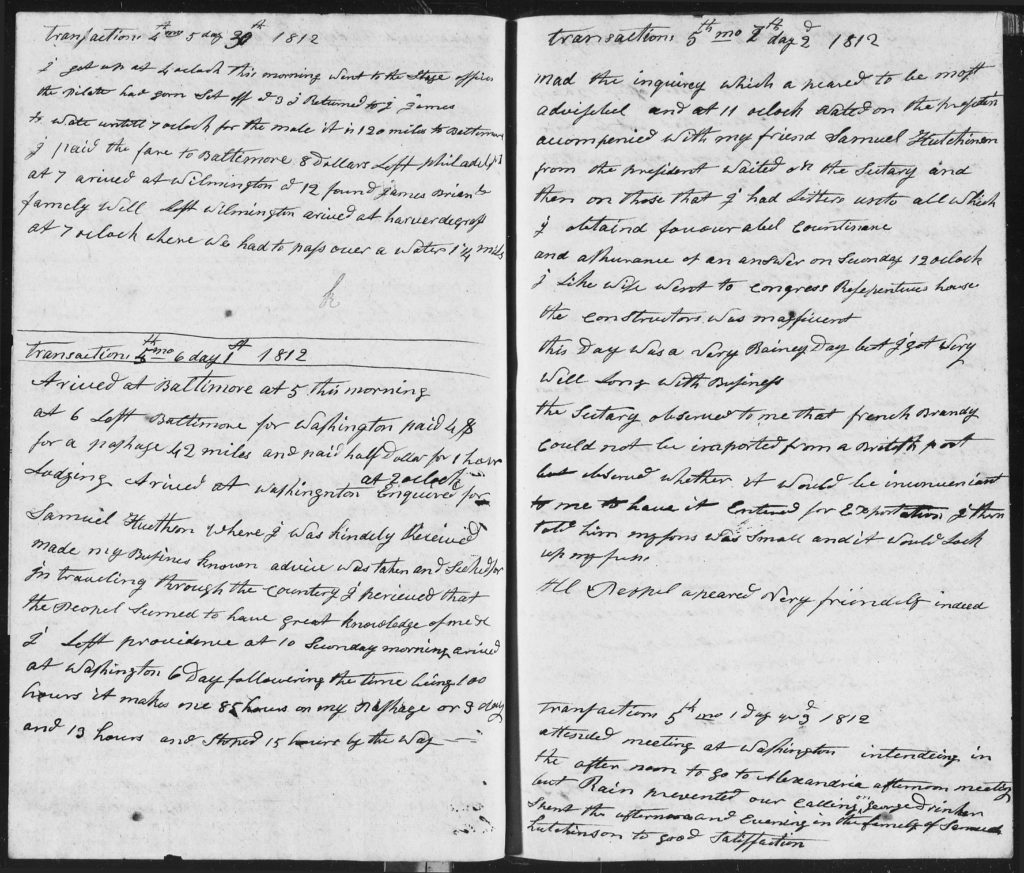 transactions 4th mo 5 day 30th 1812
I got up at 4 oclock this morning went to the Stage office
the Pilate had gorn Set off & I Returned to J James
to wate untill 7 oclock for the male it is 120 miles to Baltimore
I paid the fare to Baltimore 8 Dollars Left philadelp
at 7 arived at Wilmington 12 found James Brian
famely Well Left Wilmington arived at harverdegraf
at 7 oclock where we had to pass over a water 1¼ miles
transactions 5th mo 6 day 1st 1812
Arived at Baltimore at 5 this morning
at 6 Left Baltimore for Washington paid 4 $
for a pashage 42 miles and paid half Dollar for 1 hour
Lodging Arived at Washington at 2 oclock Enquired for
Samuel where I was kindely Received
made my Busines known advice was taken and
in traveling through the Country I percieved that
the Peopel Seemed to have great knowledge of me &
I Left providence at 10 Seconday morning arived
at Washington 6 Day followering the time being 100
hours it makes me 85 hours on my Pashage or 3 days
and 13 hours and Stoped 15 hours by the Way
transactions 5th mo 7th day 2d 1812
mad the inquirey which a peared to be most
advisebel and at 11 oclock waited on the president
accompenied with my friend Samuel Hutchinson
from the president waited on the Scutary and
then on those that I had Letters unto all which
I obtaind favourabel Countinane
and ashurance of an answer on Seconday 12 oclock
I Like wise went to Congress Representives house
the constructors was magnificent
this Day was a very Rainey Day but I got very
well Long with Business
the Scutary observed to me that french Brandy
could not be imported from a British port
but observed whether it would be inconvenient
to me to have it Entered for Exportation I then
told him my fons was Small and it would Lock
up my funs
All Peopel apeared very friendely indeed
transactions 5th mo 1 day 3d 1812
attended meeting at Washington intendeing in
the after noon to go to Alexandria afternoon meeting
but Rain prevented our Calling on George Drinker
Spent the afternoon and Evening in the famely of Samuel
Hutchinson to good Satisfaction